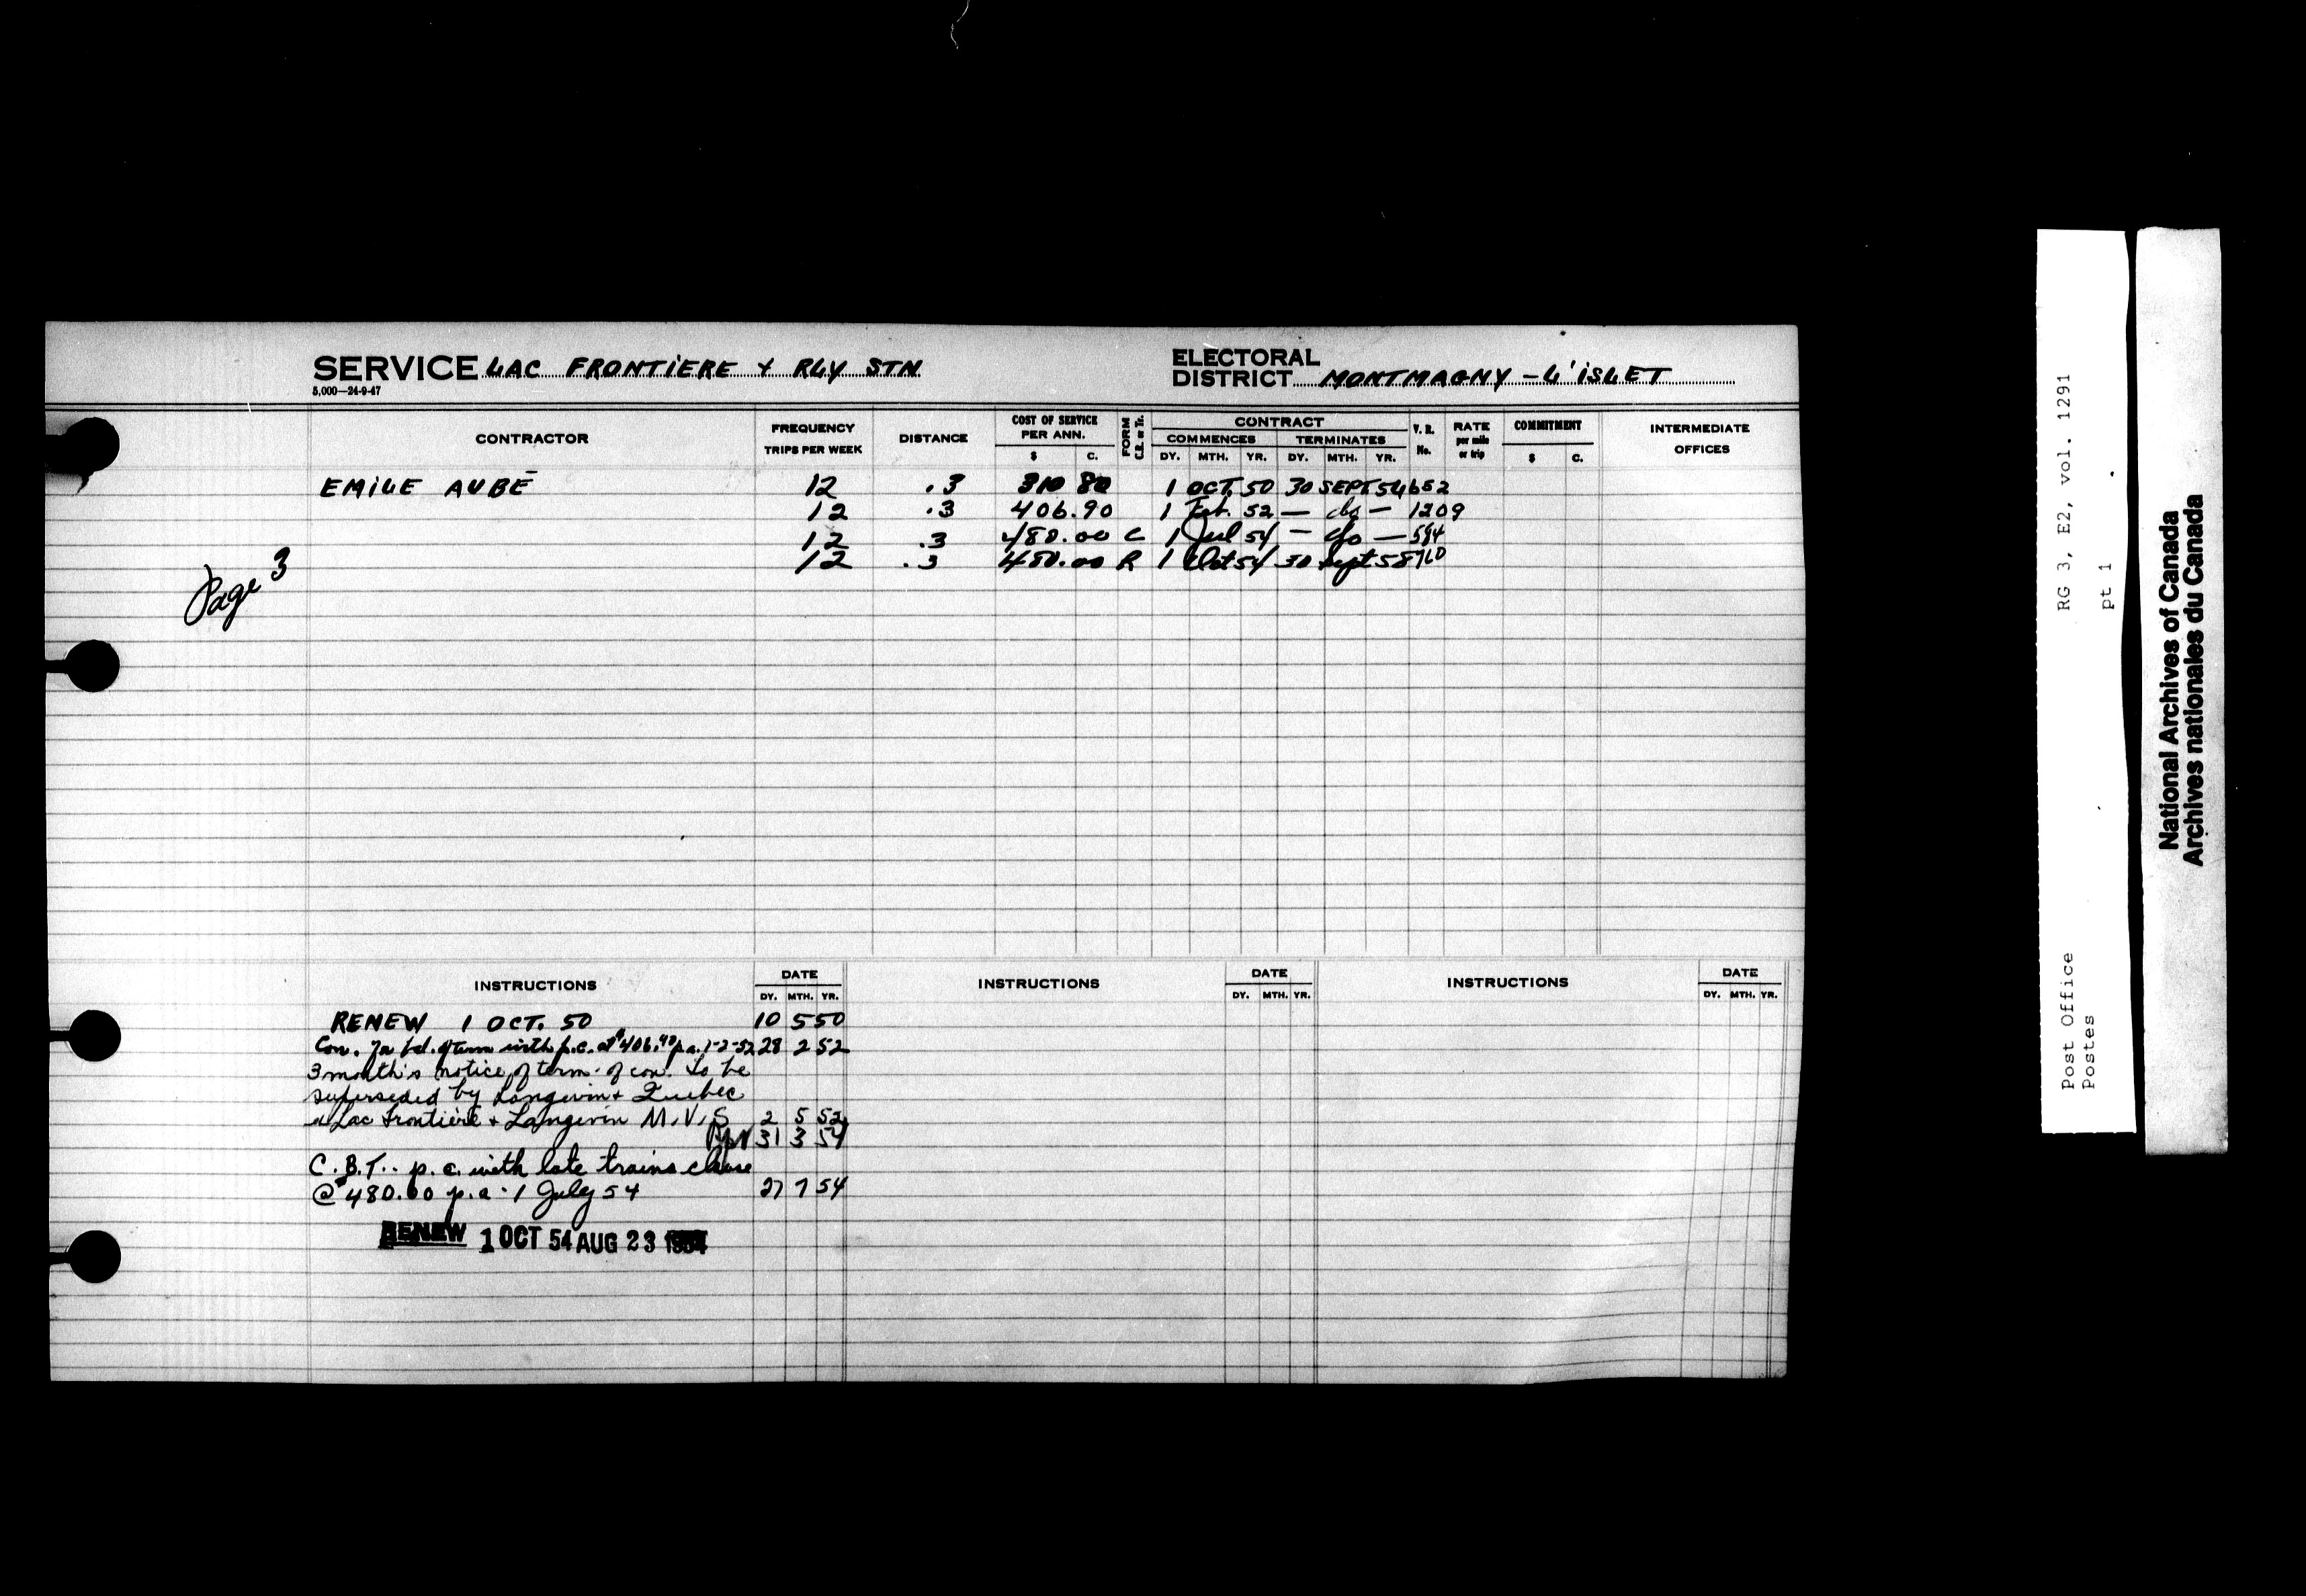 SERVICE LAC FRONTIERE & RLY STN
5,000—24-9-47
ELECTORAL DISTRICT MONTMAGNY - L'ISLET
CONTRACTOR FREQUENCY TRIPS PER WEEK DISTANCE COST OF SERVICE PER ANN. $ C. FORM C.R. or Tr. CONTRACT COMMENCES DY. MTH. YR. TERMINATES DY. MTH. YR. V. R. No. RATE per mile or trip COMMITMENT $ C. INTERMEDIATE OFFICES
EMILE AUBÉ 12 .3 310 80 1 OCT. 50 30 SEPT 54 652
12 .3 406.90 1 Feb. 52 — do — 1209
12 .3 480.00 C 1 Jul 54 — do — 594
12 .3 480.00 R 1 Oct 54 30 Sept 58 760
Page 3
INSTRUCTIONS DATE DY. MTH. YR. INSTRUCTIONS DATE DY. MTH. YR. INSTRUCTIONS DATE DY. MTH. YR.
RENEW 1 OCT. 50 10 5 50
Con. bal. of term with p.c. at $406.90 p.a. 1-2-52 28 2 52
3 month's notice of term. of con. to be
superseded by Langevin & Quebec
Lac Frontière & Langevin M.V.S 2 5 52
31 3 54
C.B.T. p.c. with late trains clause
@ $480.00 p.a. 1 July 54 27 7 54
RENEW 1 OCT 54 AUG 23 1954
RG 3, E2, vol. 1291
pt 1
Post Office
Postes
National Archives of Canada
Archives nationales du Canada